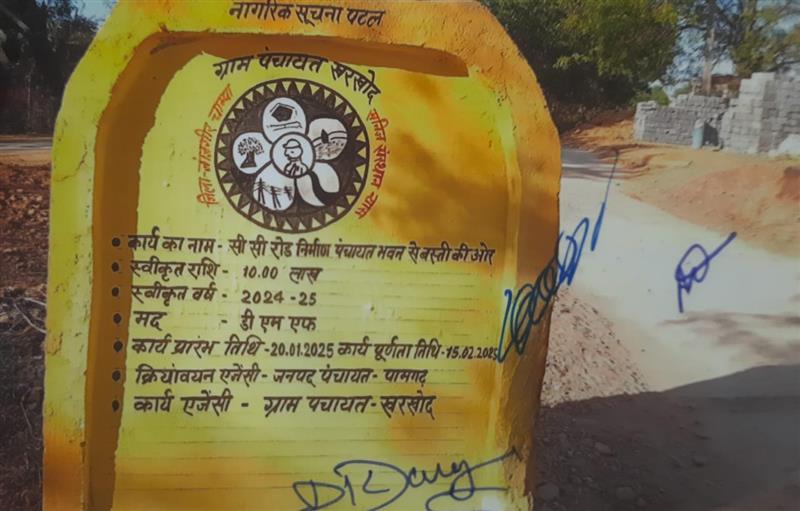 नागरिक सूचना पटल
ग्राम पंचायत खरखोद
जिला-जांजगीर चाम्पा
खनिज संस्थान न्यास
कार्य का नाम - सी सी रोड निर्माण पंचायत भवन से बस्ती की ओर
स्वीकृत राशि - 10.00 लाख
स्वीकृत वर्ष - 2024-25
मद - डी एम एफ
कार्य प्रारंभ तिथि -20.01.2025 कार्य पूर्णता तिथि -15.02.2025
क्रियांवयन एजेंसी - जनपद पंचायत - पामगढ़
कार्य एजेंसी - ग्राम पंचायत - खरखोद